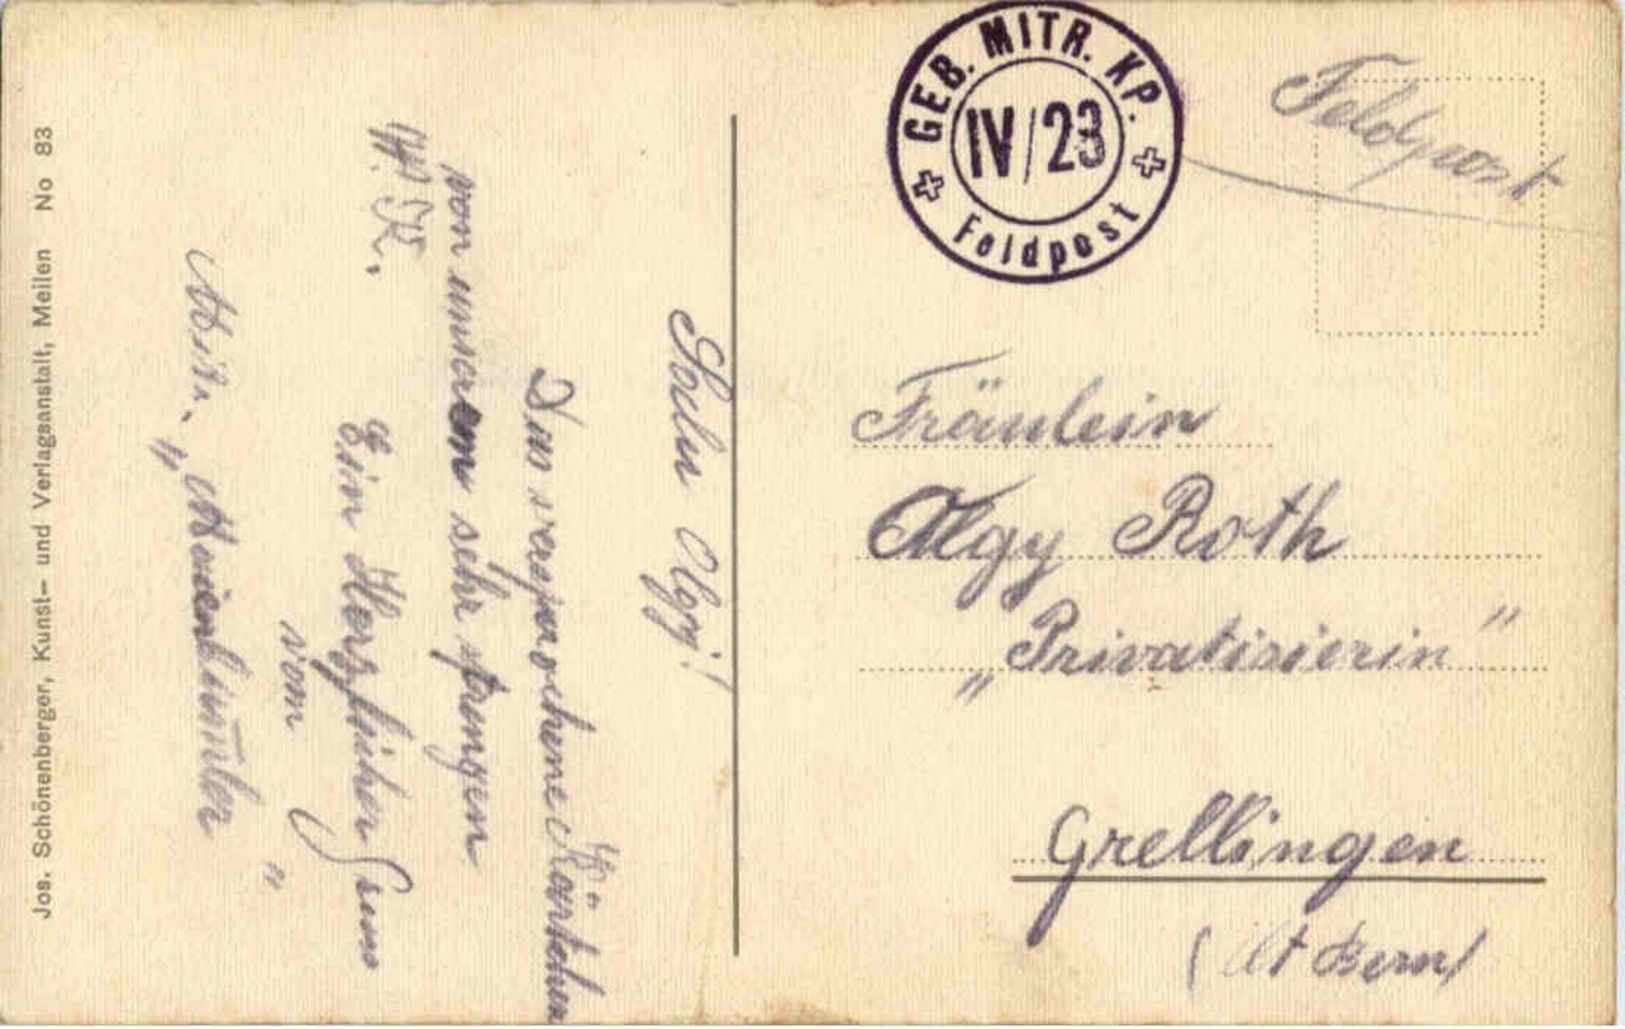 Jos. Schönenberger, Kunst- und Verlagsanstalt, Meilen No 83
Salü Olgy!
Das versprochene Kärtchen
von unserem sehr strengen
W. K.
Ein Herzlicher Gruss
vom
Mitr. „Meienbimbler"
GEB. MITR. KP.
IV/23
Feldpost
Feldpost
Fräulein
Olgy Roth
„Privatisierin"
Grellingen
(Kt Bern)